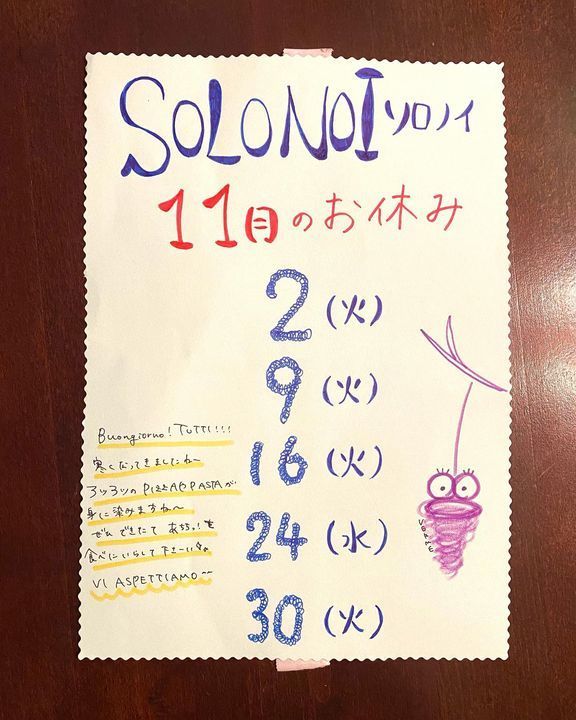 SOLO NOI ソロノイ
11月のお休み
2 (火)
9 (火)
16 (火)
24 (水)
30 (火)
Buongiorno! TUTTI!!!
寒くなってきましたね〜
アツアツの PIZZAやPASTAが
身に染みますね〜
ぜひ できたて あちち!を
食べにいらして下さーい
VI ASPETTIAMO〜